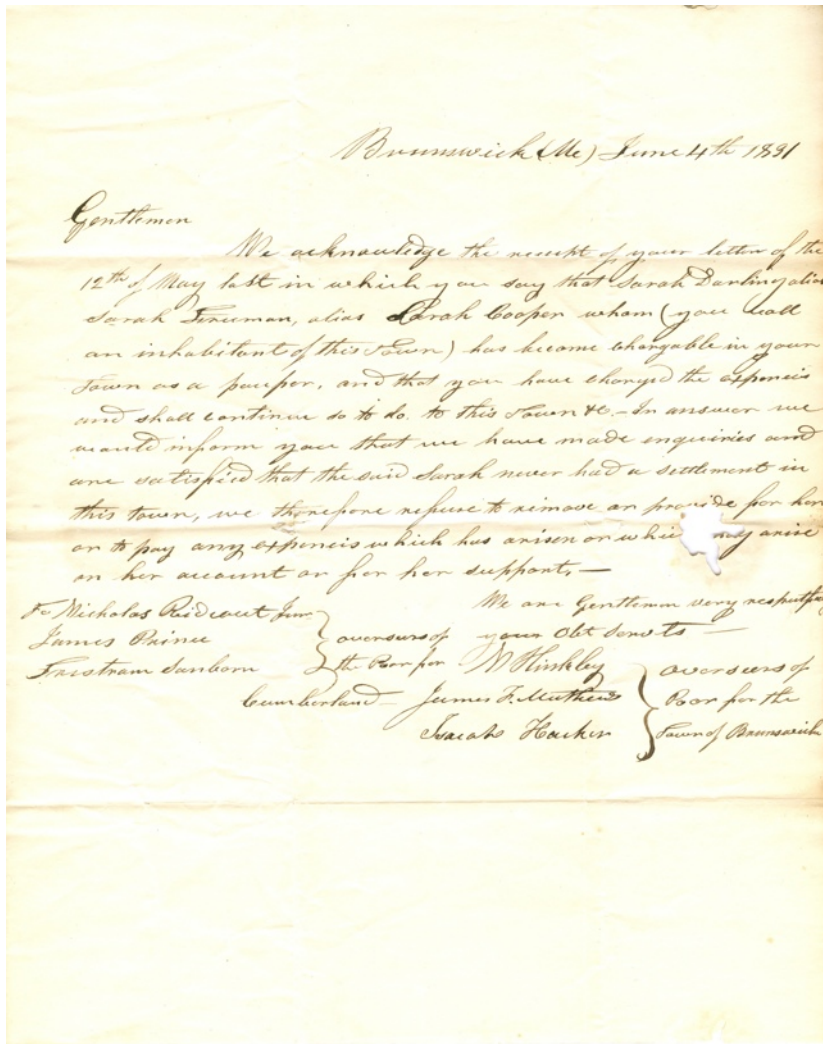 Brunswick (Me) June 4th 1831
Gentlemen
We acknowledge the receipt of your letter of the
12th of May last in which you say that Sarah Darling alias
Sarah Freeman, alias Sarah Cooper whom (you call
an inhabitant of this Town) has become chargable in your
Town as a pauper, and that you have charged the expences
and shall continue so to do. to this Town &c. - In answer we
would inform you that we have made enquiries and
are satisfied that the said Sarah never had a settlement in
this town, we therefore refuse to remove or provide for her
or to pay any expences which has arisen or whic may arise
on her account or for her support, —
We are Gentlemen very respectfu
To Nicholas Rideout Junr. overseers of your Obt Servts —
James Prince the Poor for
Tristram Sanborn Cumberland —
N Hinkley overseers of
James F. Mathews Poor for the
Isaiah Hacker Town of Brunswick